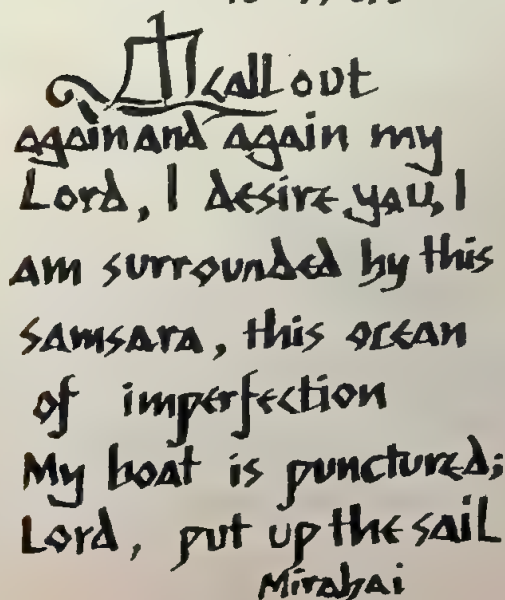 I call out
again and again my
Lord, I desire you, I
am surrounded by this
Samsara, this ocean
of imperfection
My boat is punctured;
Lord, put up the sail
Mirabai